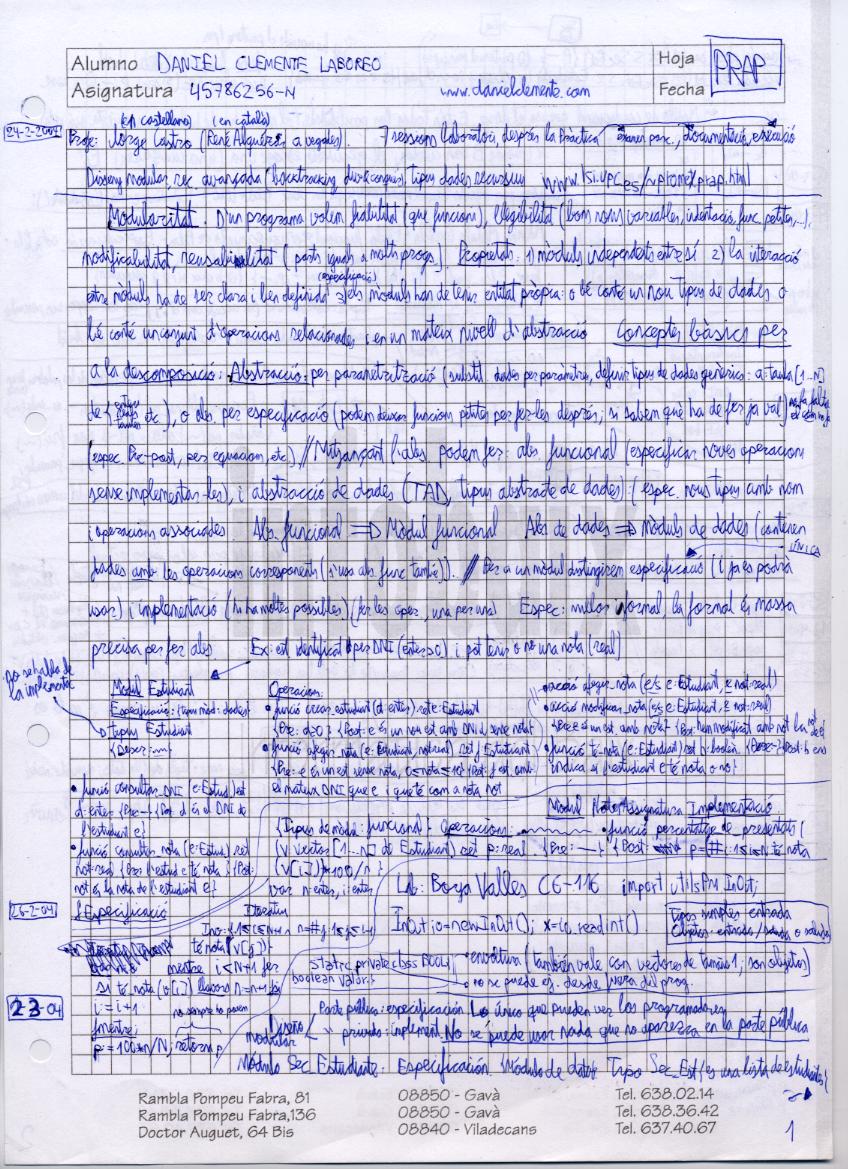 Alumno DANIEL CLEMENTE LABOREO Hoja PRAP
Asignatura 45786256-N www.danielclemente.com Fecha
(en castellano) (en català)
24-2-2004 Profe: Jorge Castro (René Alquézar a vegades). 7 sessions laboratori, després la Pràctica examen parc., documentació, execució
Disseny modular, rec. avançada (backtracking, div&conquis), tipus dades recursius www.lsi.upc.es/~prap.html
Modularitat. D'un programa volem fiabilitat (que funcioni), llegibilitat (bons noms variables, indentació, func. petites, ...),
modificabilitat, reusabilitat (parts iguals a molts progs.). Propietats: 1) mòduls independents entre sí 2) la interacció
(especificació)
entre mòduls ha de ser clara i ben definida 3) els mòduls han de tenir entitat pròpia: o bé conté un nou tipus de dades o
bé conté un conjunt d'operacions relacionades i en un mateix nivell d'abstracció Conceptes bàsics per
a la descomposició: Abstracció: per parametrització (substit. dades per paràmetres, definir tipus de dades genèrics: a: taula [1..N]
de {enters etc.}), o abs. per especificació (podem deixar funcions petites per fer-les després; si sabem què ha de fer ja val) no fa falta
(espec. Pre-post, per equacions, etc). // Mitjançant l'abs. podem fer: abs. funcional (especificar noves operacions
sense implementar-les), i abstracció de dades (TAD, tipus abstracte de dades): (espec. nous tipus amb nom
i operacions associades Abs. funcional => Mòdul funcional Abs de dades => Mòduls de dades (contenen
dades amb les operacions corresponents (s'usa abs. func també)). // Per a un mòdul distingirem especificació (i ja es podrà ÚNICA
usar) i implementació (hi ha moltes possibles) (fer les oper., una per una) Espec: millor informal, la formal és massa
precisa per fer abs. Ex: est identificat per DNI (enter>0) i pot tenir o no una nota (real)
no se habla de
la implement.
Mòdul Estudiant
Especificació: (tipus mòd: dades)
tipus Estudiant
{Descr: ...}
funció consultar_DNI (e: Estud) ret
d: enter {Pre: -} {Post: d és el DNI de
l'estudiant e}
funció consultar_nota (e: Estud) ret
not: real {Pre: l'estud e té nota} {Post:
not és la nota de l'estudiant e}
Operacions:
funció crear_estudiant (d: enter) ret e: Estudiant
{Pre: d≥0} {Post: e és un nou est amb DNI d, sense nota}
funció afegir_nota (e: Estudiant, not: real) ret f: Estudiant
{Pre: e és un est sense nota, 0≤not≤10} {Post: f est. amb
el mateix DNI que e i que té com a nota not
acció afegir_nota (e/s e: Estudiant, e not: real)
acció modificar_nota (e/s e: Estudiant, e not: real)
{Pre: e és un est. amb nota} {Post: hem modificat amb not la not de e}
funció té_nota (e: Estudiant) ret b: booleà. {Pre: -} {Post: b ens
indica si l'estudiant e té nota o no}
Mòdul NotesAssignatura Implementació
{Tipus de mòdul: funcional} Operacions: funció percentatge de presentats (
(v: vector [1...N] de Estudiant) ret p: real. {Pre: -} {Post: p = (# i: 1≤i≤N: té nota
(v[i])*100/n }
var n: enter, i: enter
Lab: Borja Valles C6-116 import utilsPM InOut;
26-2-04 {Especificació
Iteratiu
Inv: {1≤i≤N+1 ∧ n=# j: 1≤j≤i-1
té nota (v[j])}
mentre i<N+1 fer
si té nota (v[i]) llavors n=n+1 fsi
i=i+1
fmentre;
p=100*n/N; retorn p
InOut io=new InOut(); x=io.readint()
Tipos simples: entrada
Objetos: entrada/salida o salida
static private class BOOL {
boolean valor; }
envoltura (también vale con vectores de tamaño 1; son objetos)
no se puede ej. desde fuera del prog.
2-3-04
Diseño
modular
Parte pública: especificación. Lo único que pueden ver los programadores
privado: implement. No se puede usar nada que no aparezca en la parte pública
Módulo Sec_Estudiante: Especificación. Módulo de datos Tipo Sec_Est {es una lista de estudiantes}
Rambla Pompeu Fabra, 81 08850 - Gavà Tel. 638.02.14
Rambla Pompeu Fabra,136 08850 - Gavà Tel. 638.36.42
Doctor Auguet, 64 Bis 08840 - Viladecans Tel. 637.40.67
1